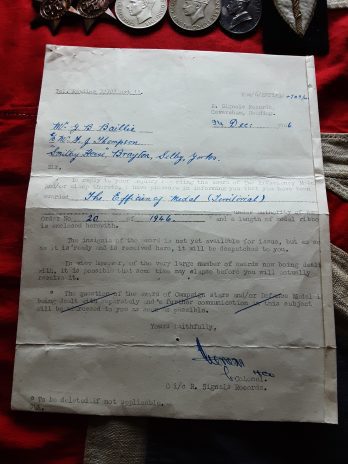 R. Signals Records
Caversham, Reading.
Dec
Mr J. B. Baillie
"Smithy House", Brayton, Selby, Yorks.
Sir,
In reply to your inquiry regarding the award of the Efficiency Medal
and/or clasp thereto, I have pleasure in informing you that you have been
awarded The Efficiency Medal (Territorial)
under authority of
Order No. 20 of 1946. and a length of medal ribbon
is enclosed herewith.
The insignia of the award is not yet available for issue, but as soon
as it is ready and is received here, it will be despatched to you.
In view however, of the very large number of awards now being dealt
with, it is possible that some time may elapse before you will actually
receive it.
The question of the award of Campaign stars and/or Defence Medal is
being dealt with separately and a further communication in this subject
will be addressed to you as soon as possible.
Yours faithfully,
Colonel.
O i/c R. Signals Records.
To be deleted if not applicable.